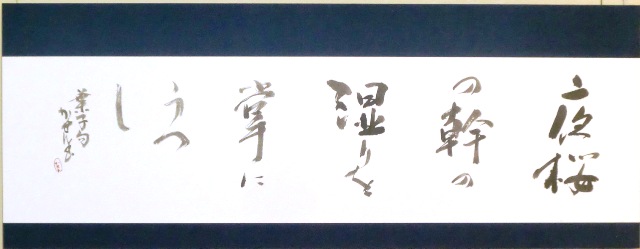 夜桜
の幹の
湿りを
掌に
うつ
し
葉子句
かせんあ